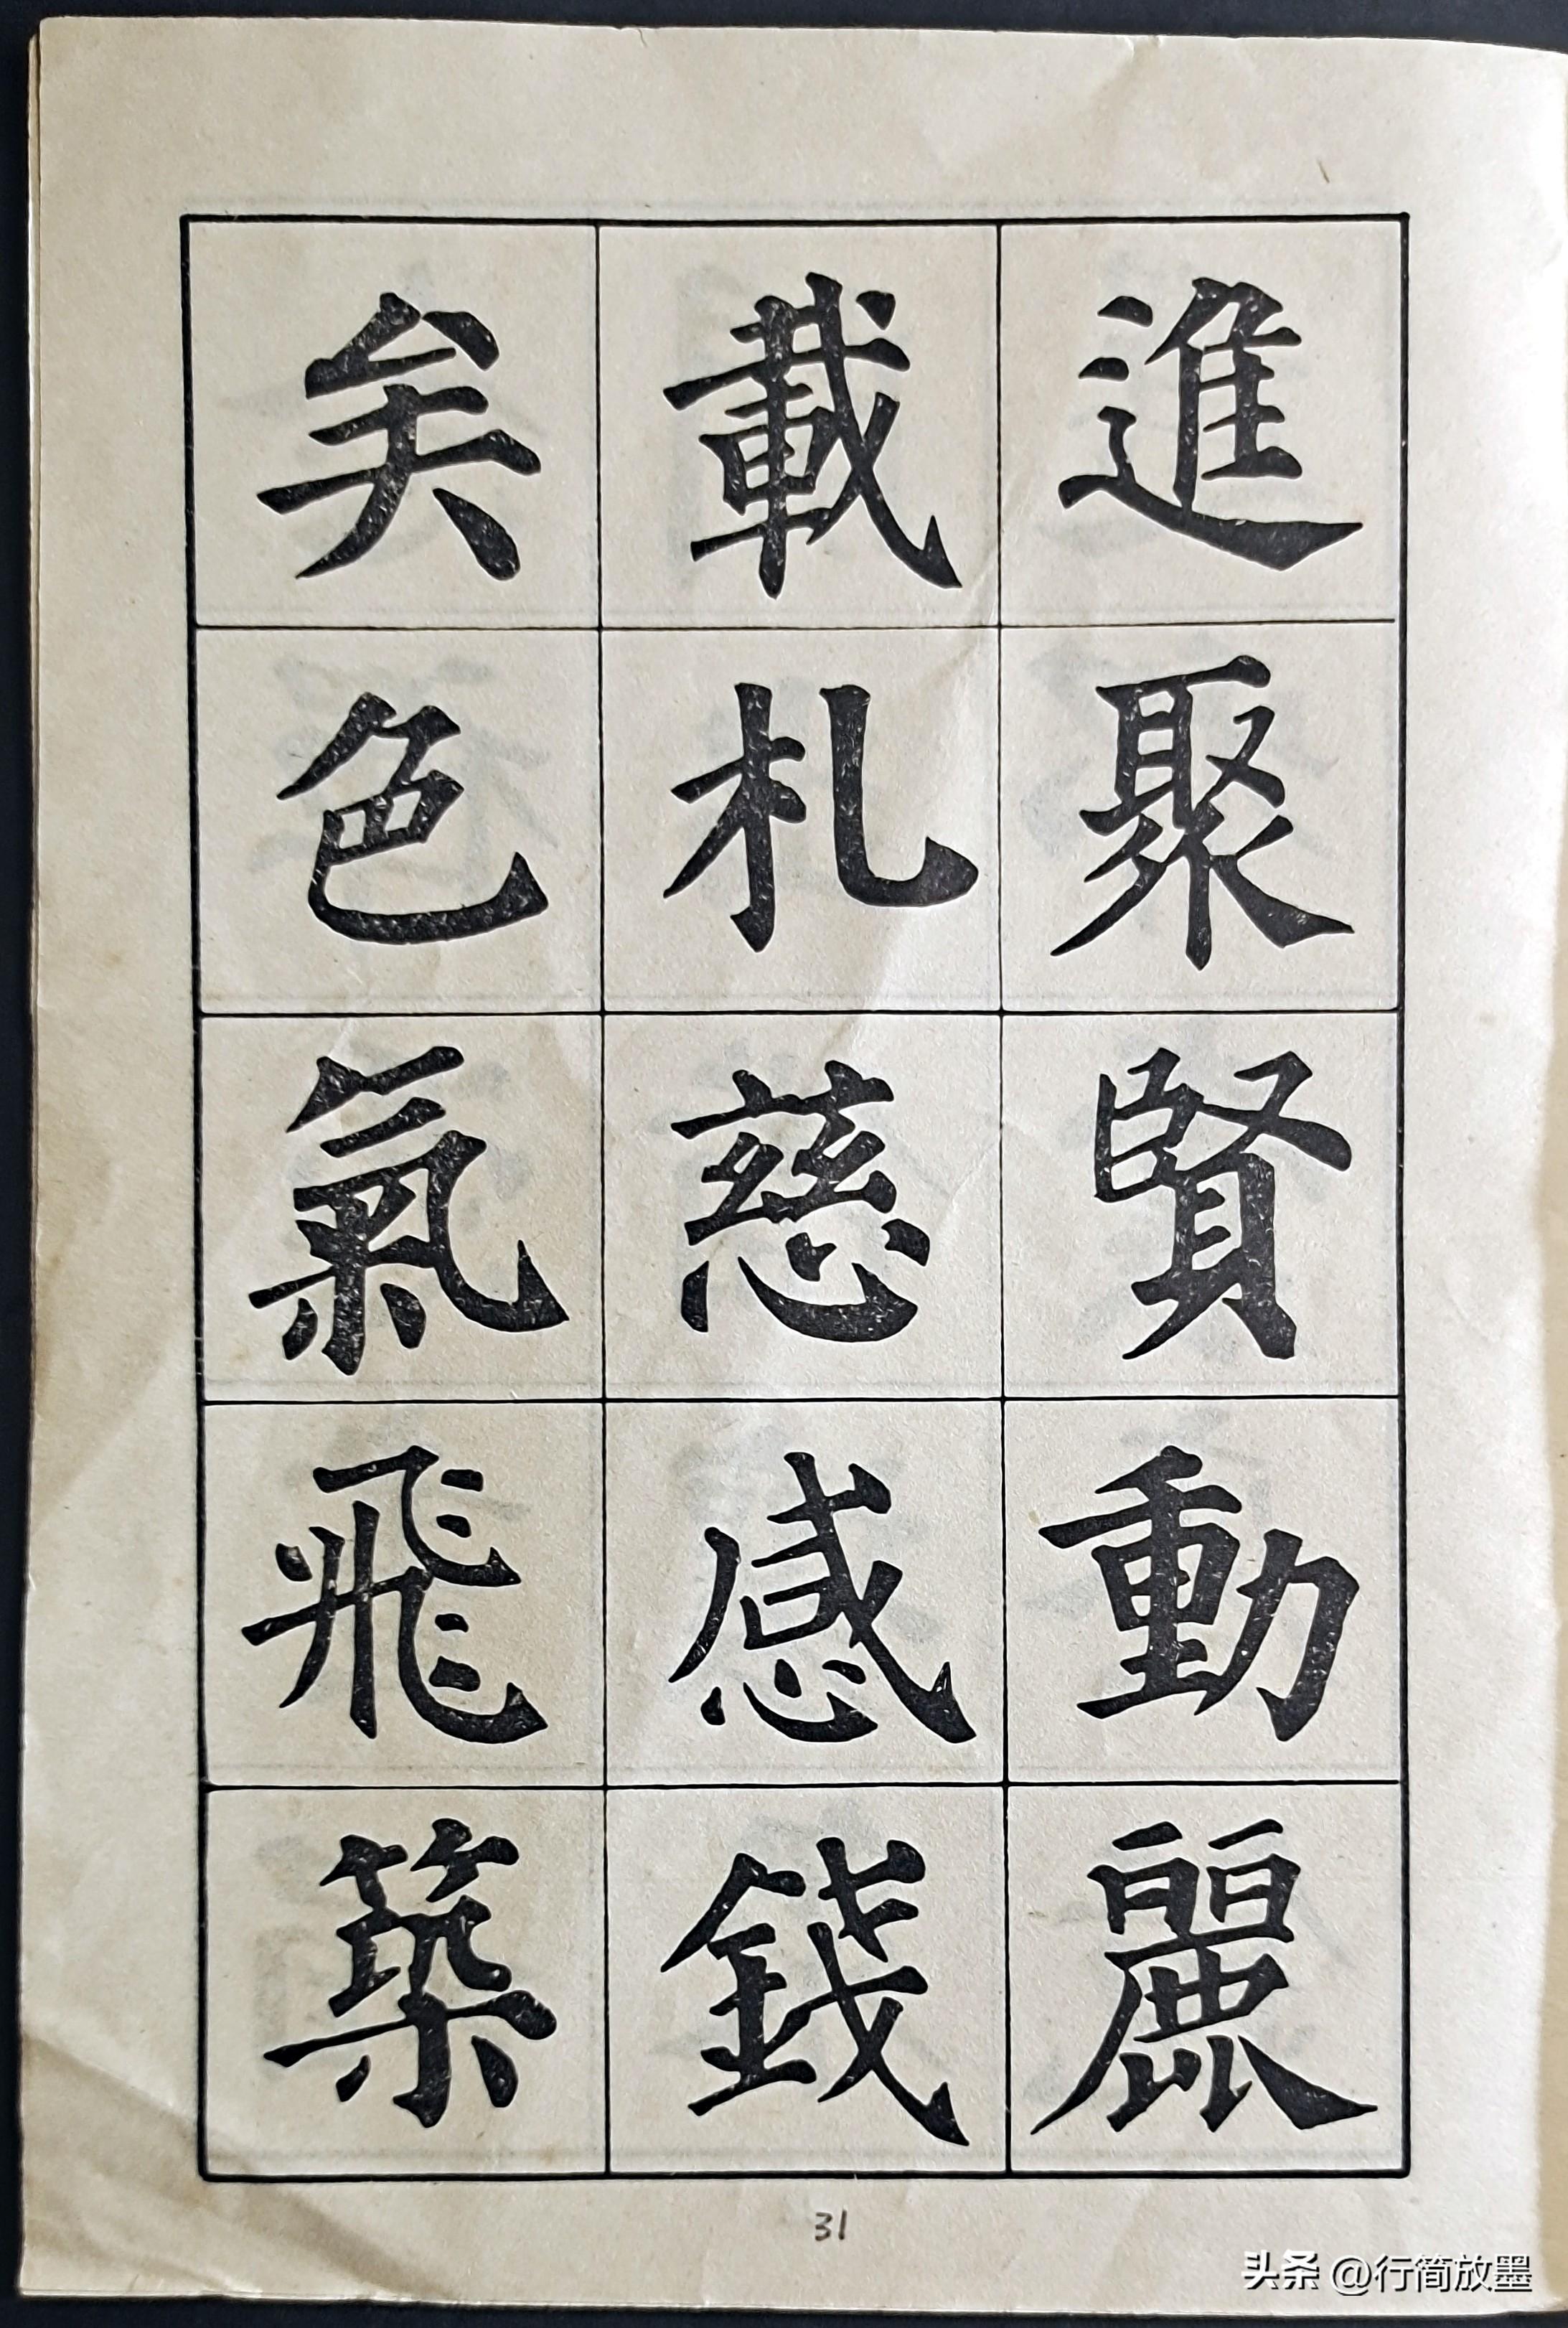 進聚賢動麗
載札慈感錢
矣色氣飛築
31
头条 @行简放墨